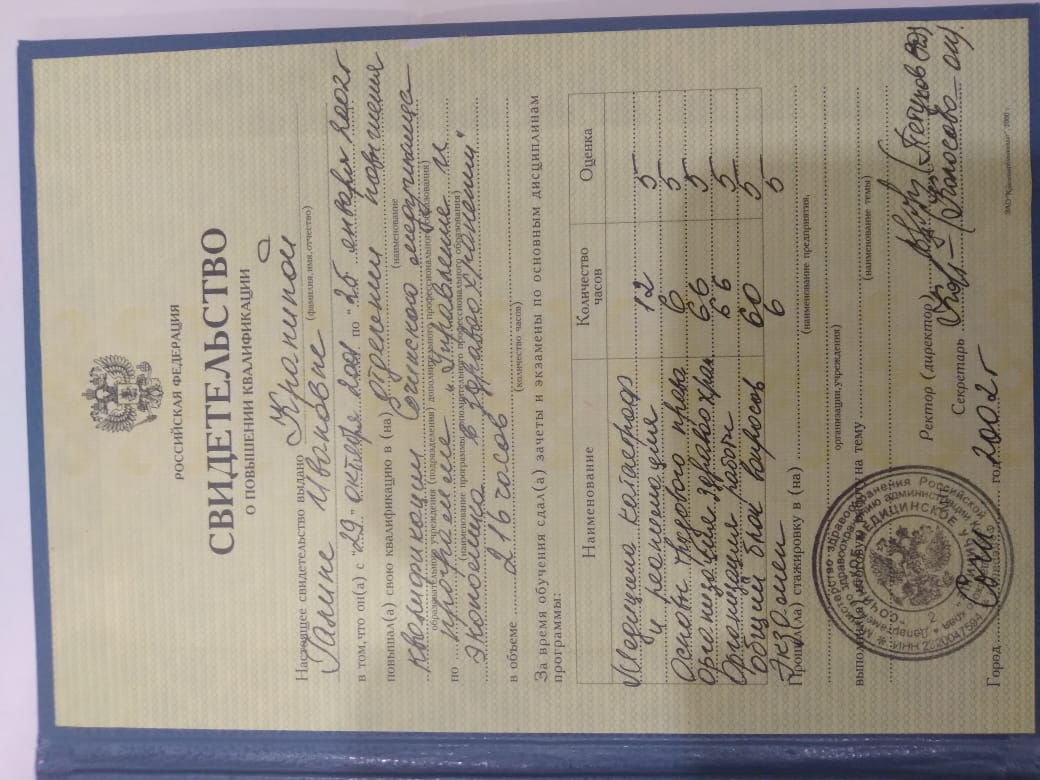 РОССИЙСКАЯ ФЕДЕРАЦИЯ
СВИДЕТЕЛЬСТВО
О ПОВЫШЕНИИ КВАЛИФИКАЦИИ
Настоящее свидетельство выдано
(фамилия, имя, отчество)
Галине Ивановне
в том, что он(а) с "29" октября 2001 по "25" января 2002г
повышал(а) свою квалификацию в (на) отделении повышения
(наименование
квалификации Сочинского медучилища
образовательного учреждения (подразделения) дополнительного профессионального образования)
по программе "Управление и
(наименование программы дополнительного профессионального образования)
экономика в здравоохранении"
в объеме 216 часов
(количество часов)
За время обучения сдал(а) зачеты и экзамены по основным дисциплинам
программы:
Наименование Количество часов Оценка
Медицина катастроф
и реанимация 12 5
Основы трудового права 6 5
Организация здравоохран 66 5
Организация работы 66 5
общий блок вопросов 60 5
Экзамен 6 5
Прошел(ла) стажировку в (на)
(наименование предприятия,
организации, учреждения)
выполнил(а) итоговую работу на тему
(наименование темы)
Ректор (директор)
Секретарь
Город Сочи год 2002г